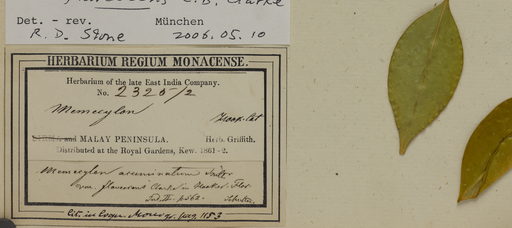 C. B. Clarke
Det. - rev. München
R. D. Stone 2006.05.10
HERBARIUM REGIUM MONACENSE.
Herbarium of the late East India Company.
No. 2325/2
Memecylon
and MALAY PENINSULA. Herb. Griffith.
Distributed at the Royal Gardens, Kew, 1861-2.
Memecylon acuminatum Smith
var. flavescens Clarke in Hooker Flor
Ind. II. p 562.
Cit. in Engl. Monogr. pag 1153